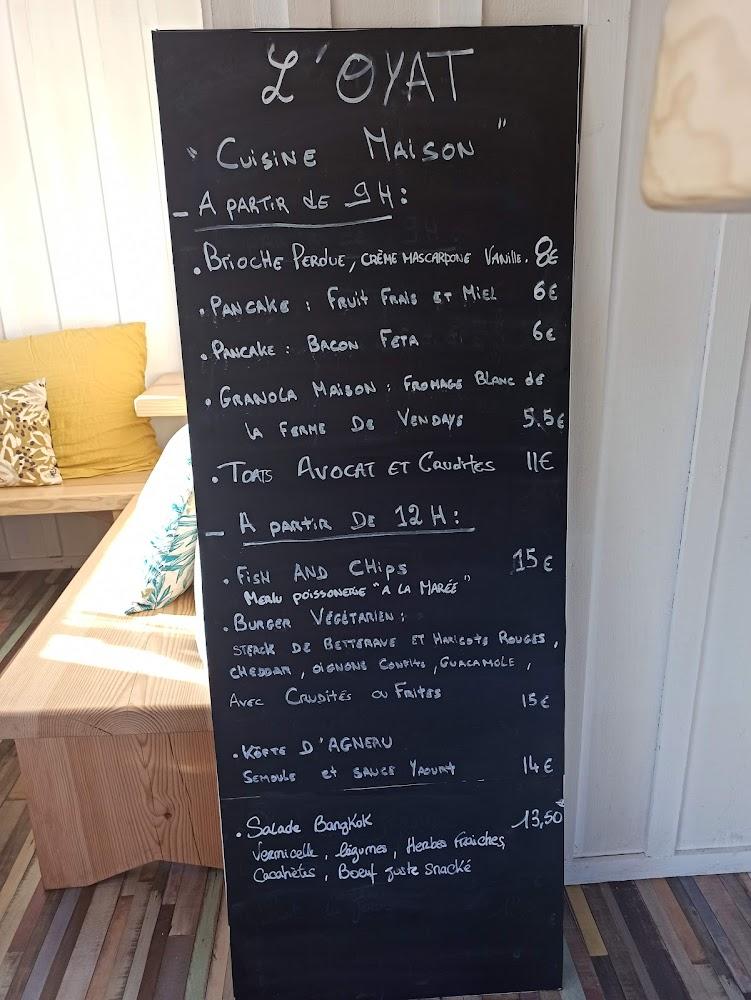 L'OYAT
" CUISINE MAISON "
- A PARTIR DE 9H :
. BRIOCHE PERDUE, CRÈME MASCARPONE VANILLE. 8€
. PANCAKE : FRUIT FRAIS ET MIEL 6€
. PANCAKE : BACON FETA 6€
. GRANOLA MAISON : FROMAGE BLANC DE
LA FERME DE VENDAYS 5.5€
. TOATS AVOCAT ET CRUDITES 11€
- A PARTIR DE 12H :
. FISH AND CHIPS 15€
MERLU POISSONERIE "A LA MARÉE"
. BURGER VÉGÉTARIEN :
STEACK DE BETTERAVE ET HARICOTS ROUGES,
CHEDDAR, OIGNONS CONFITS, GUACAMOLE,
AVEC CRUDITÉS OU FRITES 15€
. KÖFTE D'AGNEAU
SEMOULE ET SAUCE YAOURT 14€
. Salade Bangkok 13,50€
Vermicelle, légumes, Herbes Fraiches,
Cacahètes, Boeuf juste snacké